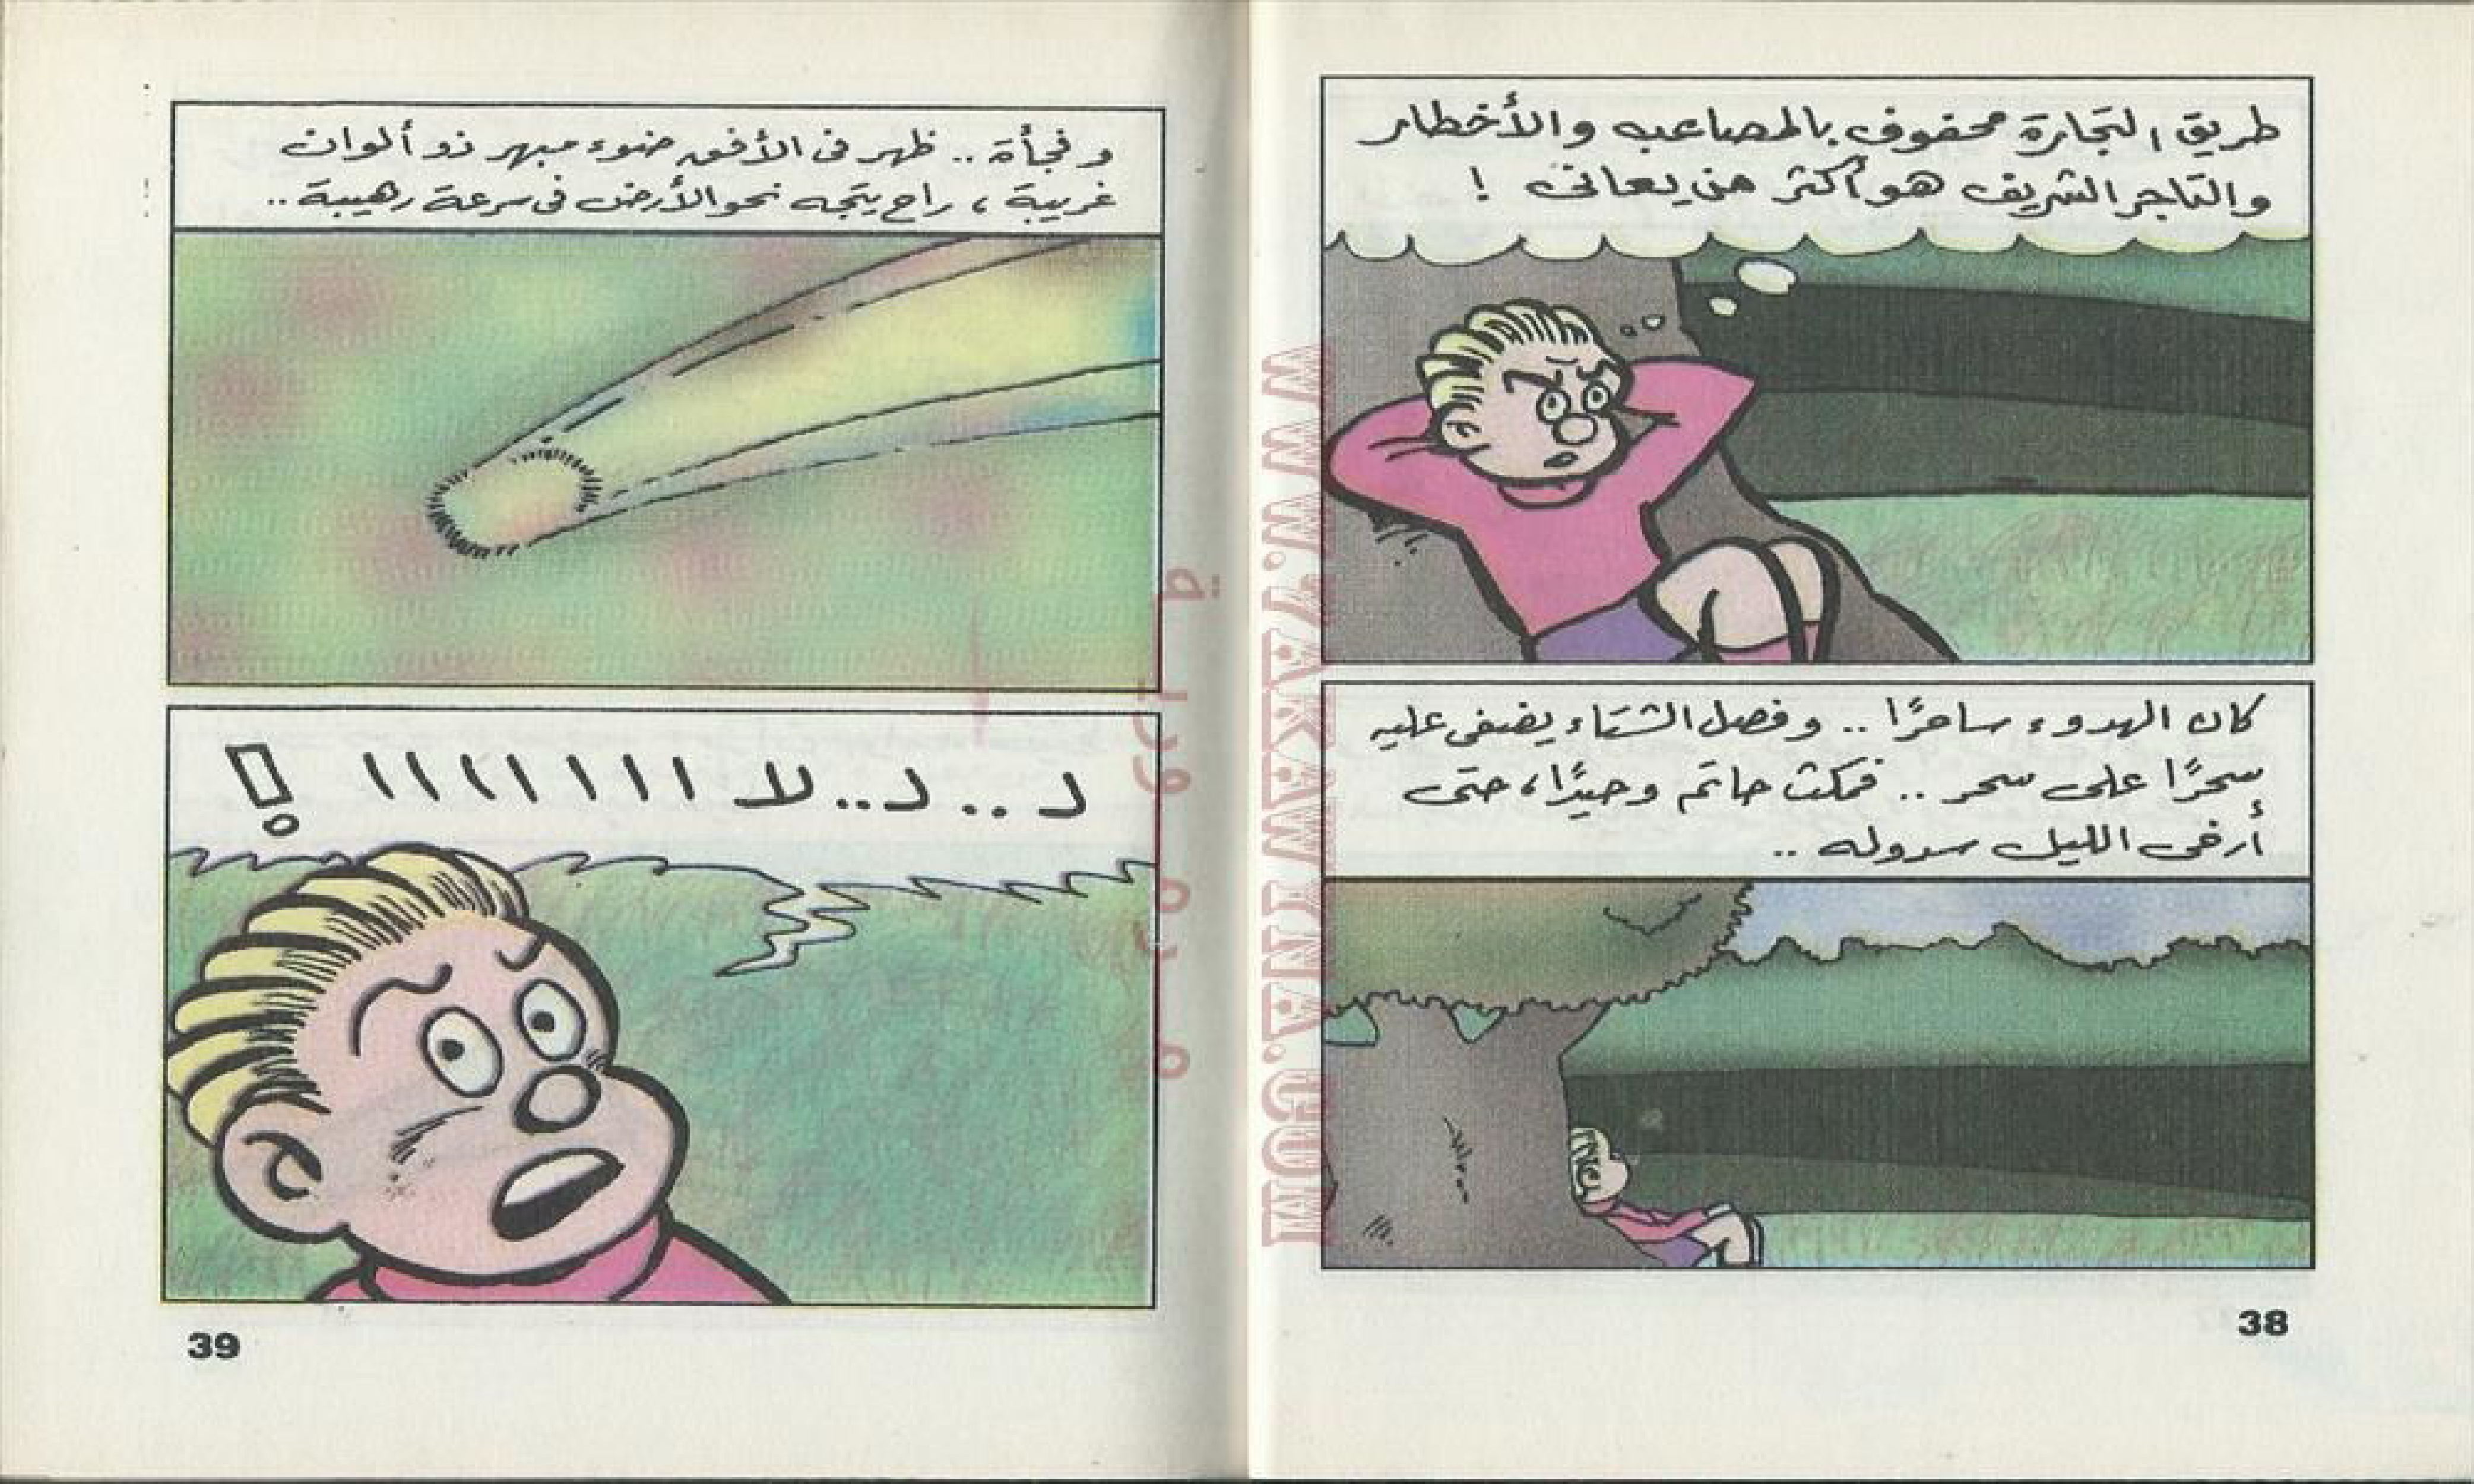 طريق التجارة محفوف بالمصاعب والأخطار
والتاجر الشريف هو أكثر من يعانى !
كان الهدوء ساحرًا .. وفصل الشتاء يضفى عليه
سحرًا على سحر .. فمكث حاتم وحيدًا، حتى
أرخى الليل سدوله ..
38
وفجأة .. ظهر فى الأفق ضوء مبهر ذو ألوان
غريبة ، راح يتجه نحو الأرض فى سرعة رهيبة ..
لـ .. لـ .. لا ا ا ا ا ا ا ا !
39
WWW.